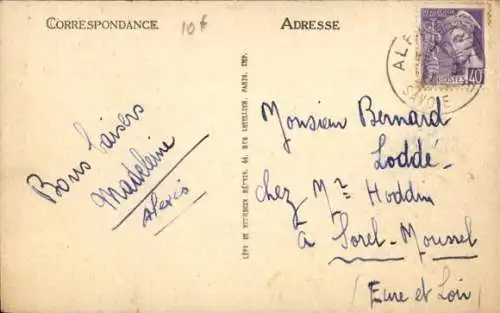 CORRESPONDANCE
10f
ADRESSE
SAVOIE
POSTES 40
LÉVY ET NEURDEIN RÉUNIS, 44, RUE LETELLIER, PARIS, IMP.
Bons baisers
Madeleine
Alexis
Monsieur Bernard
Loddé
chez Mr Hoddin
à Sorel-Moussel
(Eure et Loir)